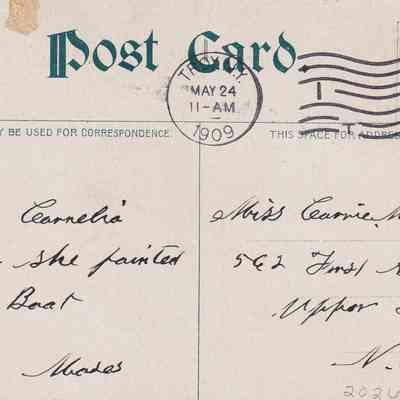 Post Card
TROY, N.Y.
MAY 24
11-AM
1909
1
T
Y BE USED FOR CORRESPONDENCE.
THIS SPACE FOR ADDRE
Cornelia
she painted
Boat
Miss Carrie
562 First
Upper
N.
202